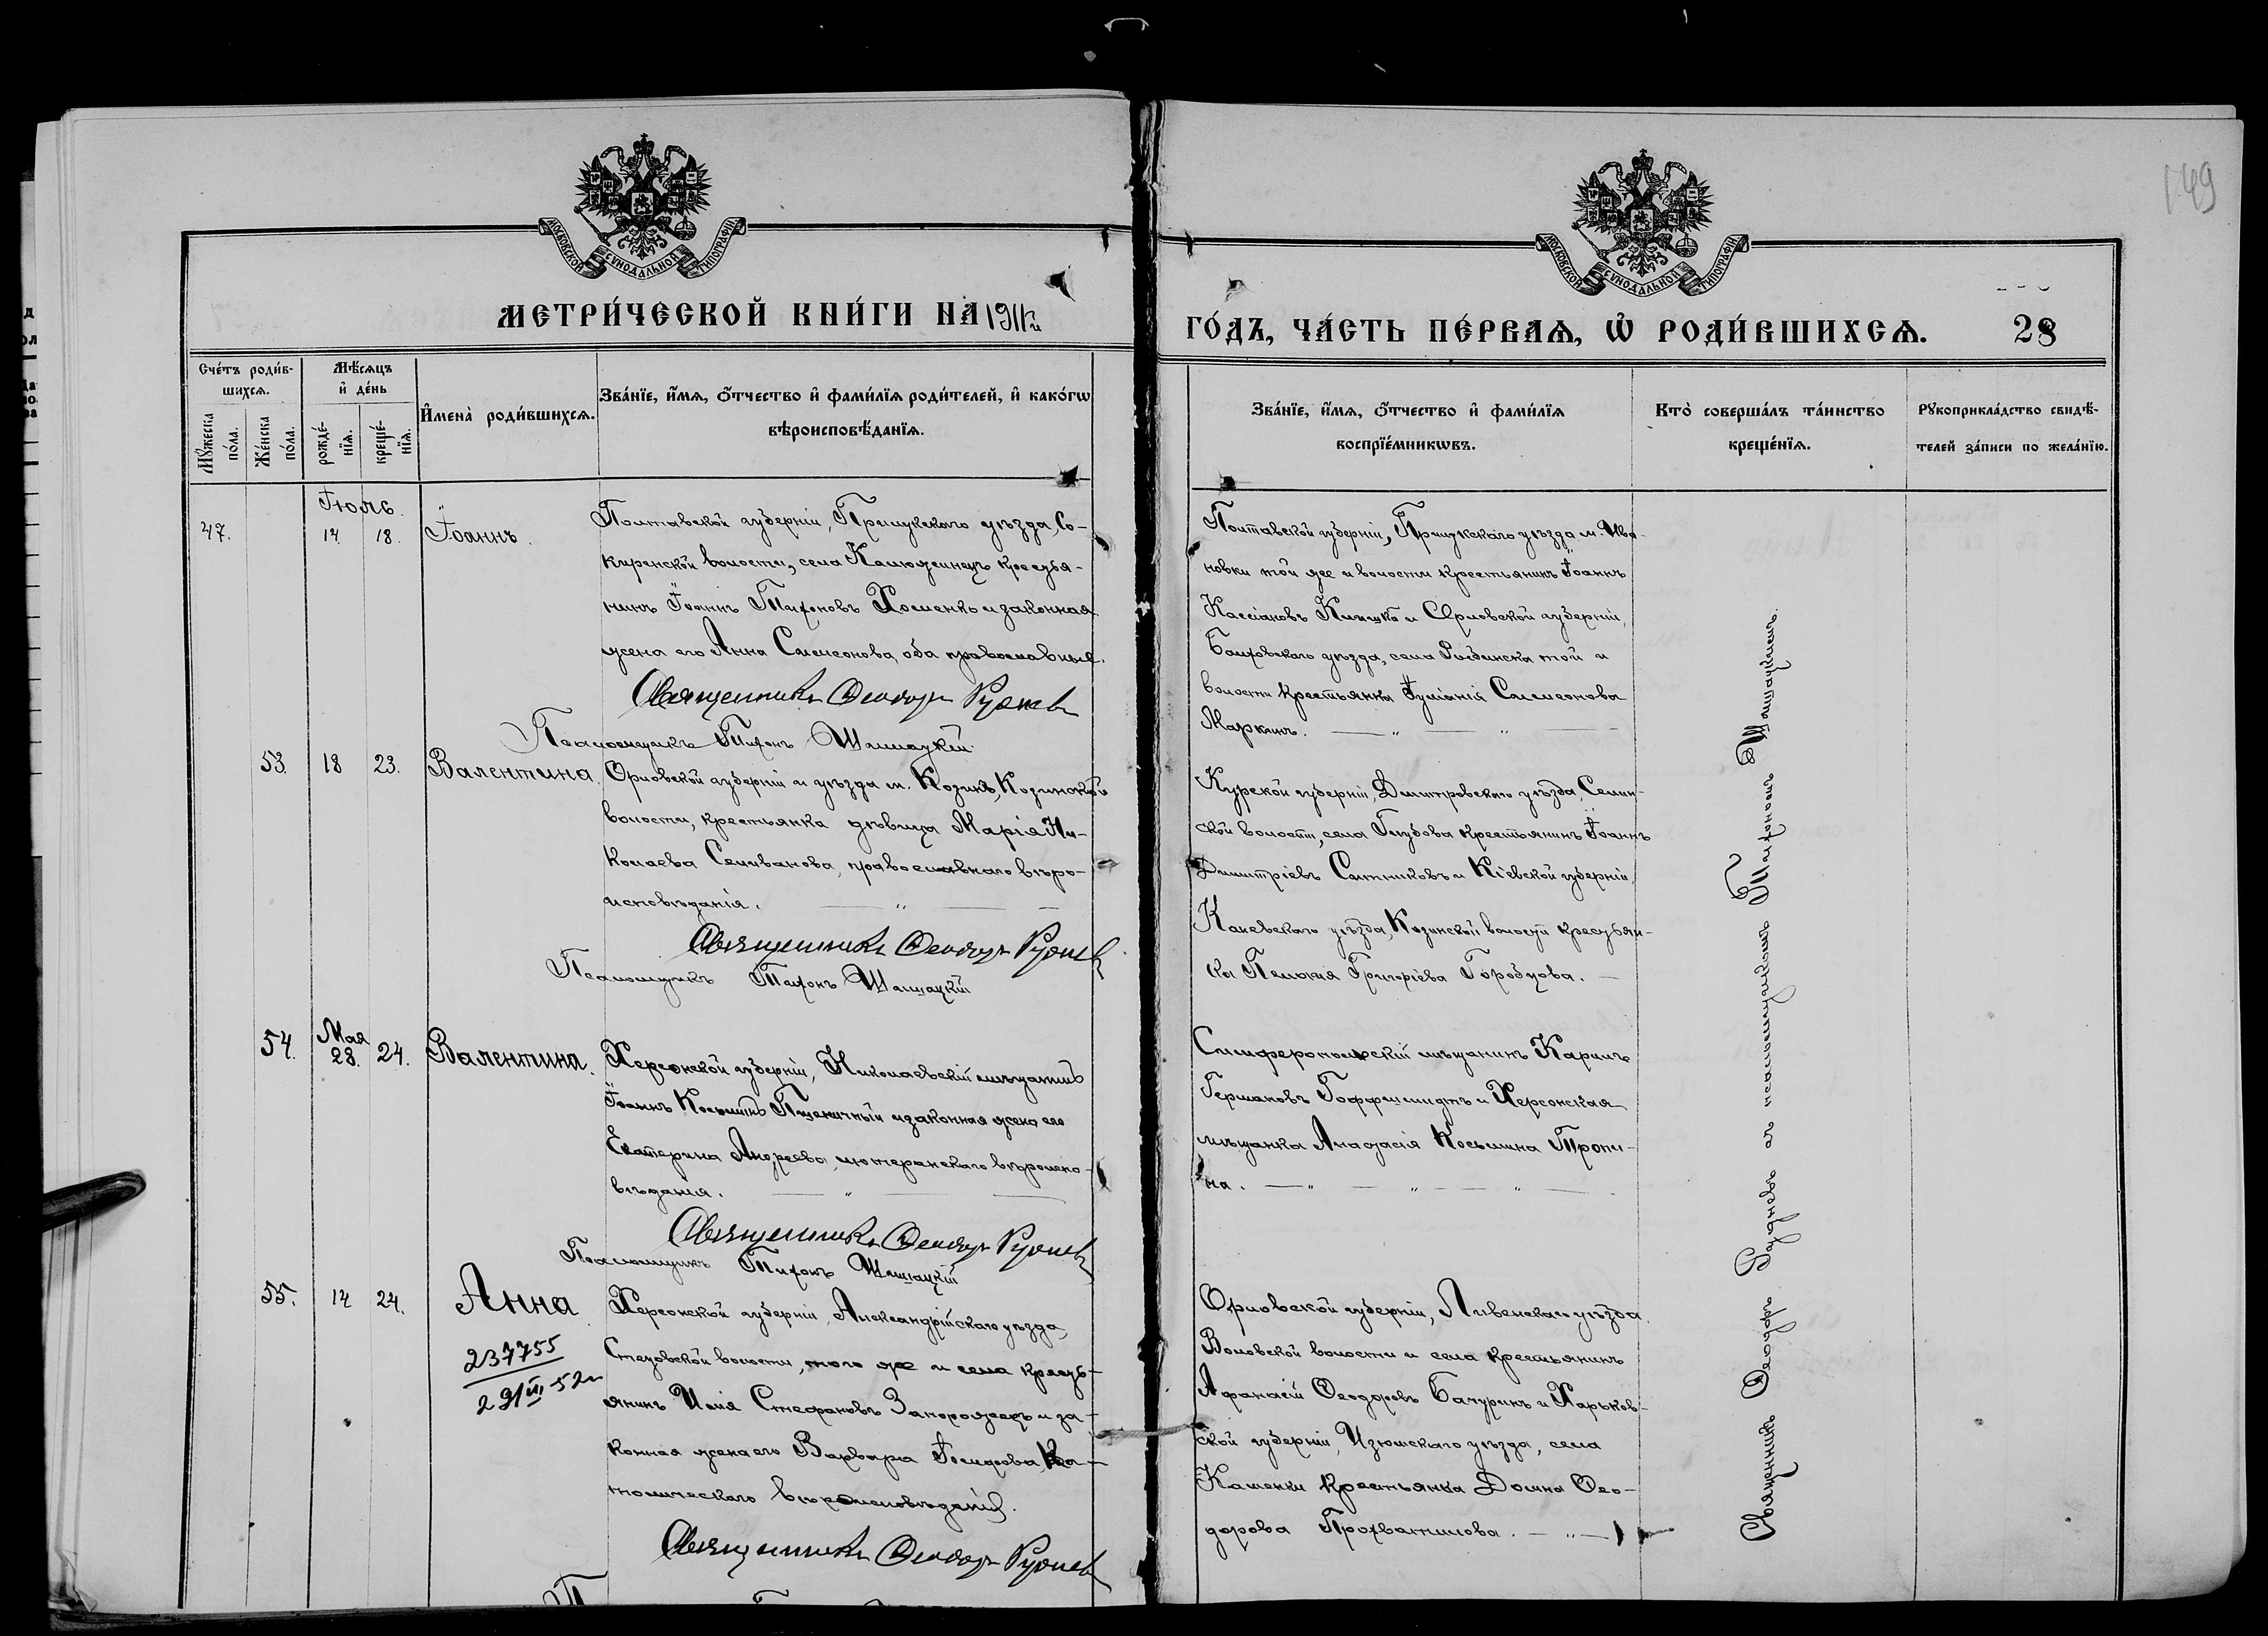 149
МОСКОВСКОЙ СѴНОДАЛЬНОЙ ТИПОГРАФІИ
МОСКОВСКОЙ СѴНОДАЛЬНОЙ ТИПОГРАФІИ
МЕТРИ́ЧЕСКОЙ КНИ́ГИ НА 1911й
ГО́ДЪ, ЧА́СТЬ ПЕ́РВАѦ, Ѽ РОДИ́ВШИХСѦ. 28
Сче́тъ роди́в-
шихсѧ.
Мꙋ́жеска
по́ла.
Же́нска
по́ла.
Мѣ́сѧцъ
и҆ де́нь
рожде́-
нїѧ.
креще́-
нїѧ.
И҆мена̀ роди́вшихсѧ.
Зва́нїе, и҆́мѧ, ѻ҆́тчество и҆ фами́лїѧ роди́телей, и҆ како́гѡ
вѣроисповѣ́данїѧ.
Зва́нїе, и҆́мѧ, ѻ҆́тчество и҆ фами́лїѧ
воспрїе́мникѡвъ.
Кто̀ соверша́лъ та́инство
креще́нїѧ.
Рꙋкоприкла́дство свидѣ́-
телей за́писи по жела́нїю.
Іюль.
47. 14. 18. Іоаннъ.
Полтавской губерніи, Прилукскаго уѣзда, Со-
киренской волости, села Калюжинецъ крестья-
нинъ Іоаннъ Тихоновъ Хоменко и законная
жена его Анна Симеонова, оба православные.
Священникъ Ѳеодоръ Руднев
Псаломщикъ Тихонъ Шашацкій.
Полтавской губерніи, Прилукскаго уѣзда м. Ива-
новки той же и волости крестьянинъ Іоаннъ
Кассіановъ и Орловской губерніи,
Болховскаго уѣзда, села той и
волости крестьянка Іуліанія Симеонова
Маркинъ. — " — " —
53. 18 23. Валентина.
Орловской губерніи и уѣзда м. Козинъ, Козинской
волости, крестьянка дѣвица Марія Ни-
колаева Селиванова, православнаго вѣро-
исповѣданія. — " — —
Священникъ Ѳеодоръ Руднев
Псаломщикъ Тихонъ Шашацкій
Курской губерніи, Дмитровскаго уѣзда,
ской волости, села Глубова крестьянинъ Іоаннъ
Димитріевъ Ситниковъ и Кіевской губерніи,
Каневскаго уѣзда, Козинской волости крестьян-
ка Пелагія Григорьева Горобцова. —
54. Мая 28. 24. Валентина.
Херсонской губерніи, Николаевскій мѣщанинъ
Іоаннъ Косьминъ Пшеничный и законная жена его
Екатерина Андреева, лютеранскаго вѣроиспо-
вѣданія. — " — —
Священникъ Ѳеодоръ Руднев
Псаломщикъ Тихонъ Шашацкій
Симферопольскій мѣщанинъ Карлъ
Германовъ Гоффшмидтъ и Херсонская
мѣщанка Анастасія Косьмина Тропи-
на. — " — " — " —
55. 14 24. Анна.
237755
29/III-52г
Херсонской губерніи, Александрійскаго уѣзда,
волости, того же и села кресть-
янинъ Илія Стефановъ Запорожецъ и за-
конная жена его Варвара Іосифова, Ка-
толическаго вѣроисповѣданія.
Священникъ Ѳеодоръ Руднев
Орловской губерніи, Ливенскаго уѣзда,
Воловской волости и села крестьянинъ
Аѳанасій Ѳеодоровъ Бачуринъ и Харьков-
ской губерніи, Изюмскаго уѣзда, села
Каменки крестьянка Домна Ѳео-
дорова Прохватилова. — " —
Священникъ Ѳеодоръ Рудневъ съ псаломщикомъ Тихономъ Шашацкимъ.